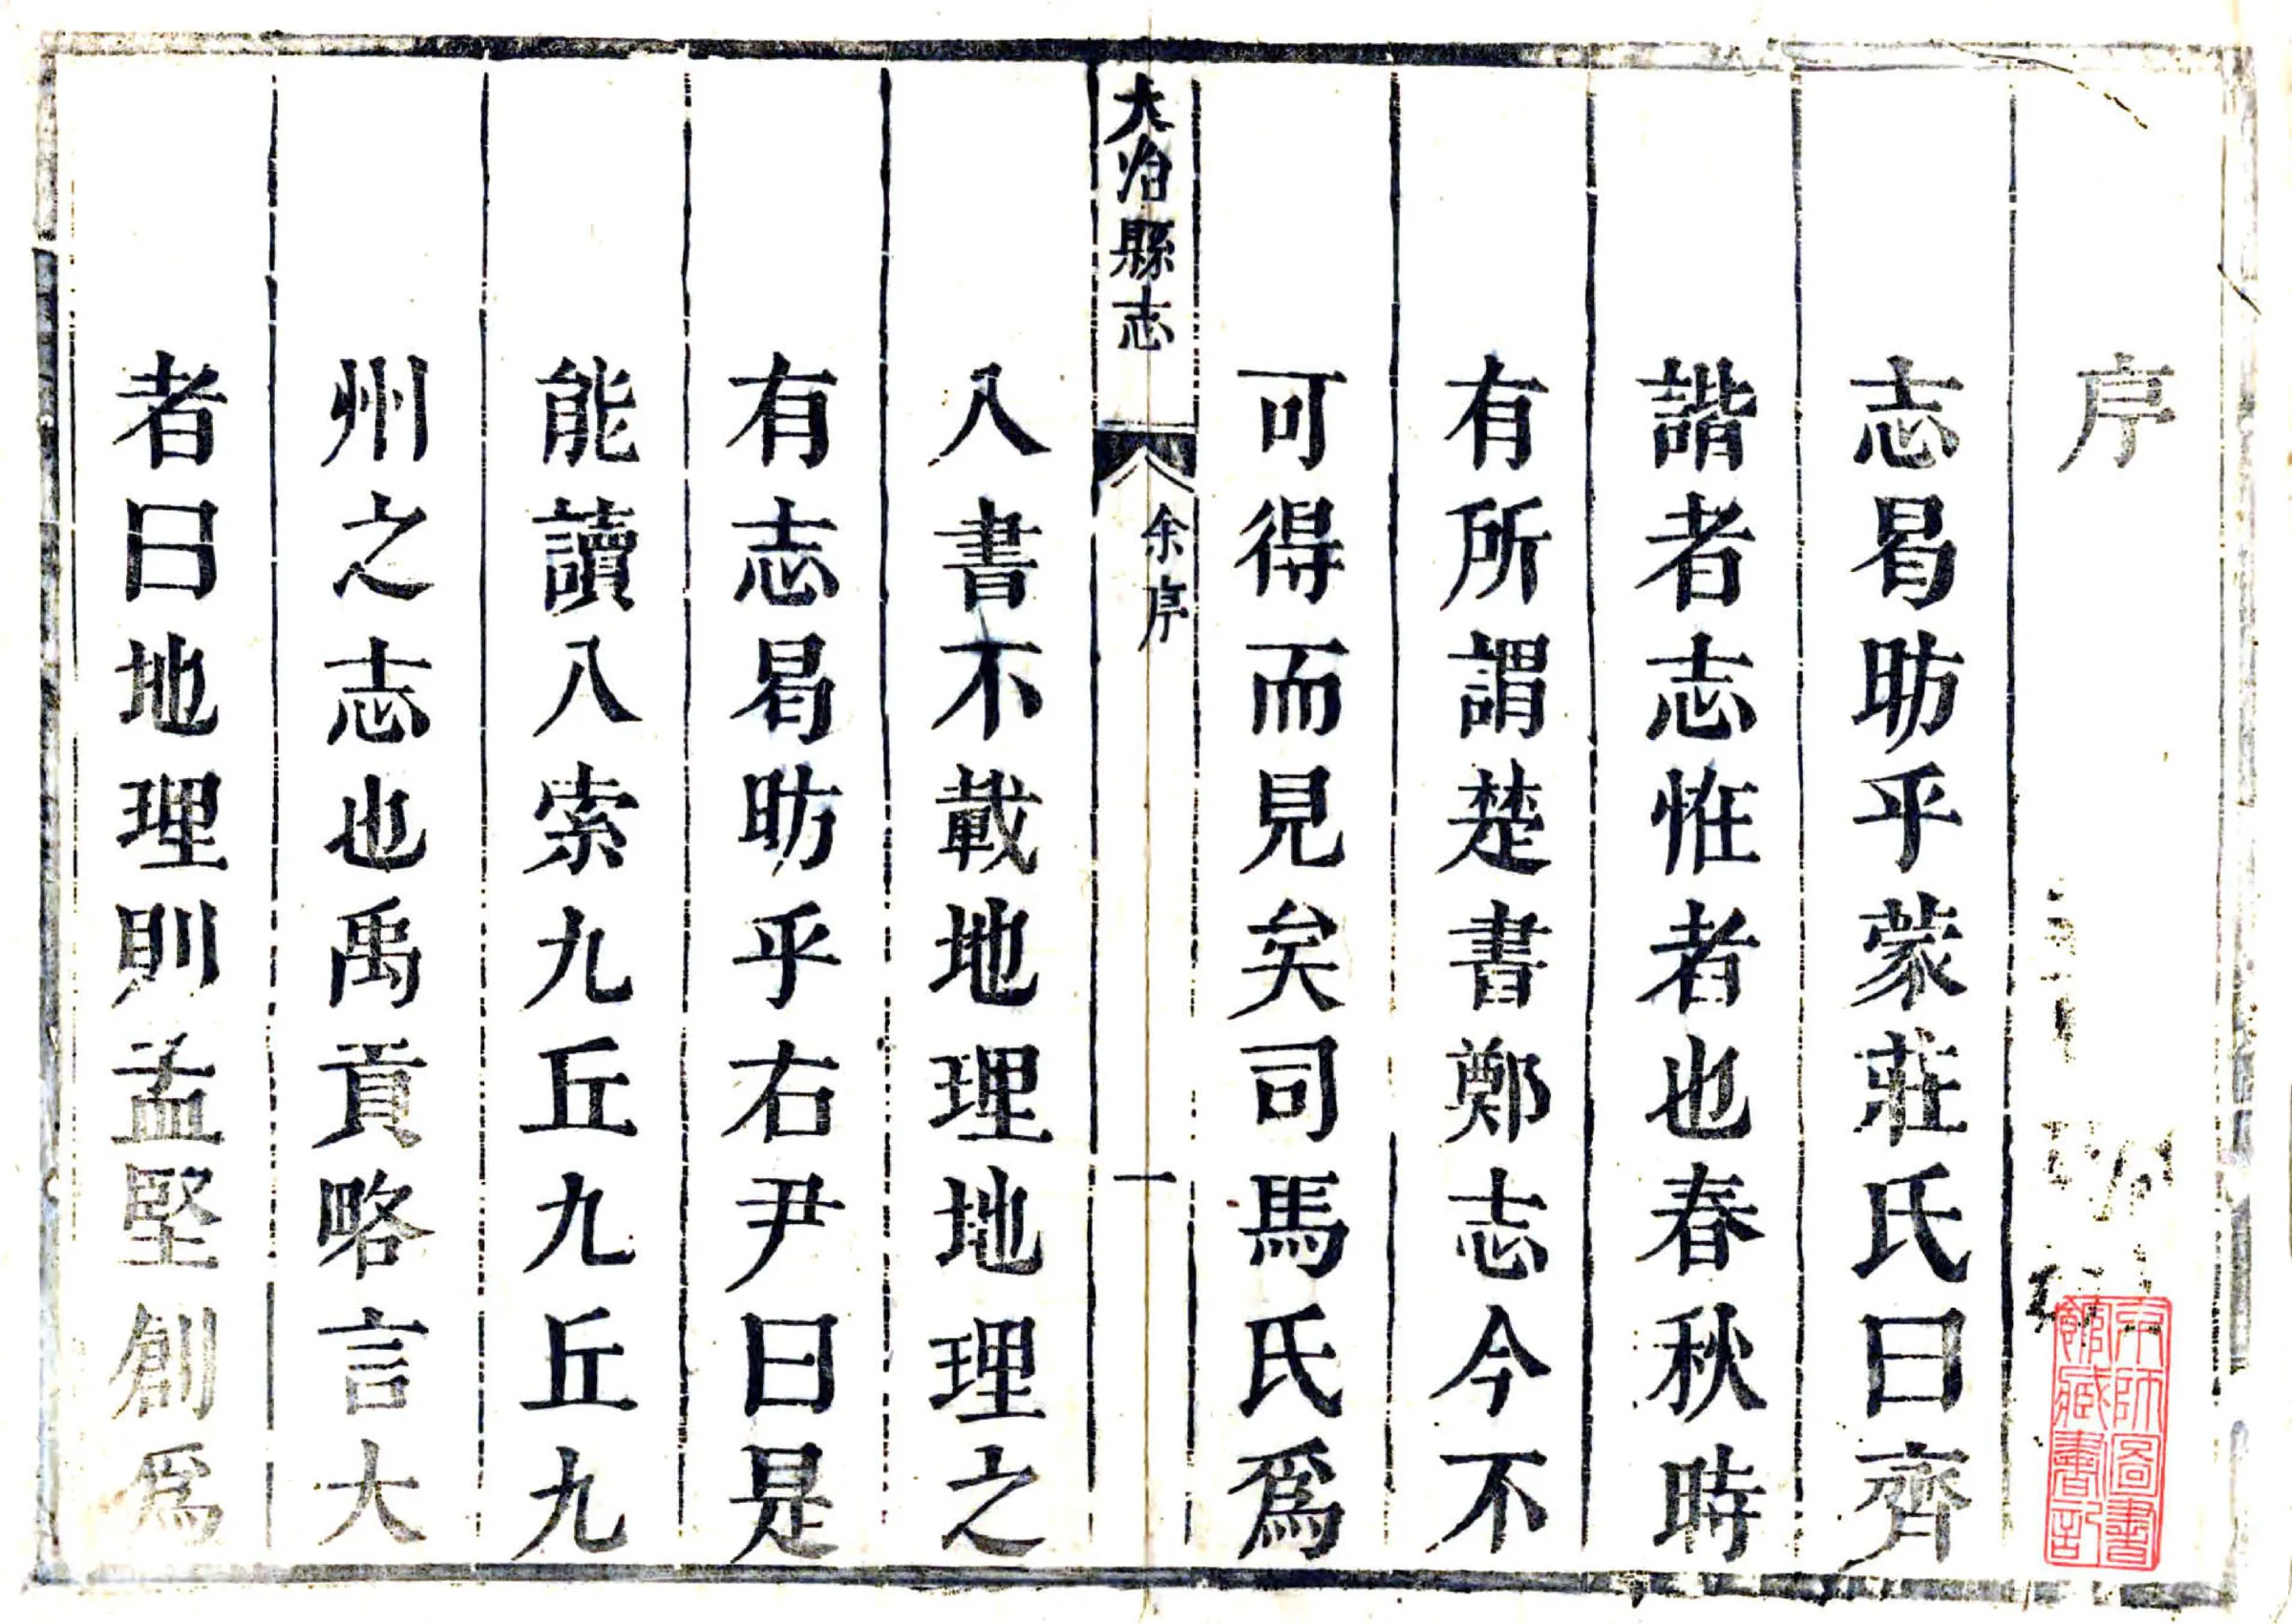 序
志曷昉乎蒙莊氏曰齊
諧者志恠者也春秋時
有所謂楚書鄭志今不
可得而見矣司馬氏爲
大冶縣志
余序
一
八書不載地理地理之
有志曷昉乎右尹曰是
能讀八索九丘九丘九
州之志也禹貢略言大
者曰地理則孟堅創爲
京師圖書
館臧書記